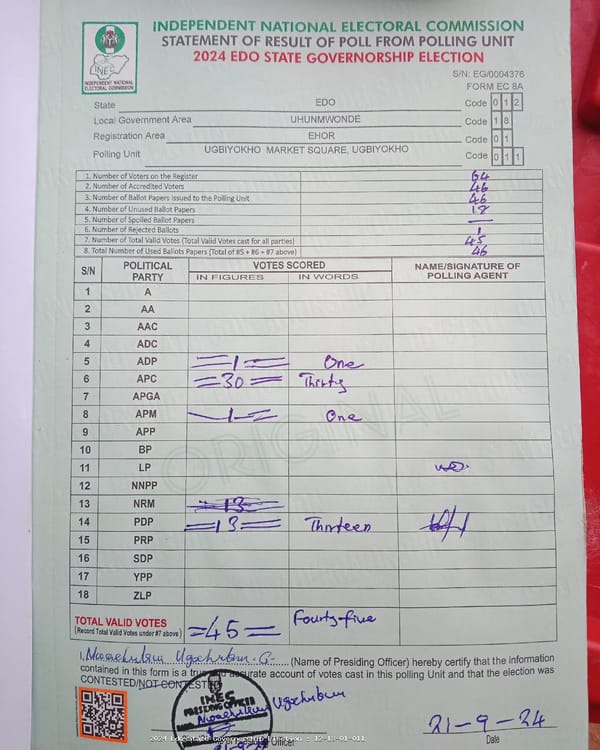 INDEPENDENT NATIONAL ELECTORAL COMMISSION
STATEMENT OF RESULT OF POLL FROM POLLING UNIT
2024 EDO STATE GOVERNORSHIP ELECTION
INEC
INDEPENDENT NATIONAL
ELECTORAL COMMISSION
S/N: EG/0004376
FORM EC 8A
State EDO Code 0 1 2
Local Government Area UHUNMWONDE Code 1 8
Registration Area EHOR Code 0 1
Polling Unit UGBIYOKHO MARKET SQUARE, UGBIYOKHO Code 0 1 1
1. Number of Voters on the Register 64
2. Number of Accredited Voters 46
3. Number of Ballot Papers issued to the Polling Unit
4. Number of Unused Ballot Papers 18
5. Number of Spoiled Ballot Papers —
6. Number of Rejected Ballots 1
7. Number of Total Valid Votes (Total Valid Votes cast for all parties) 45
8. Total Number of Used Ballots Papers (Total of #5 + #6 + #7 above) 46
S/N POLITICAL PARTY VOTES SCORED NAME/SIGNATURE OF POLLING AGENT
IN FIGURES IN WORDS
1 A
2 AA
3 AAC
4 ADC
5 ADP =1= One
6 APC =30= Thirty
7 APGA
8 APM 1= One
9 APP
10 BP
11 LP
12 NNPP
13 NRM 13
14 PDP =13= Thirteen
15 PRP
16 SDP
17 YPP
18 ZLP
ORIGINAL
TOTAL VALID VOTES =45= Fourty-five
(Record Total Valid Votes under #7 above)
I, (Name of Presiding Officer) hereby certify that the information
contained in this form is a true and accurate account of votes cast in this polling Unit and that the election was
CONTESTED/NOT CONTESTED
INEC
PRESIDING OFFICER
21-9-24
Officer Date